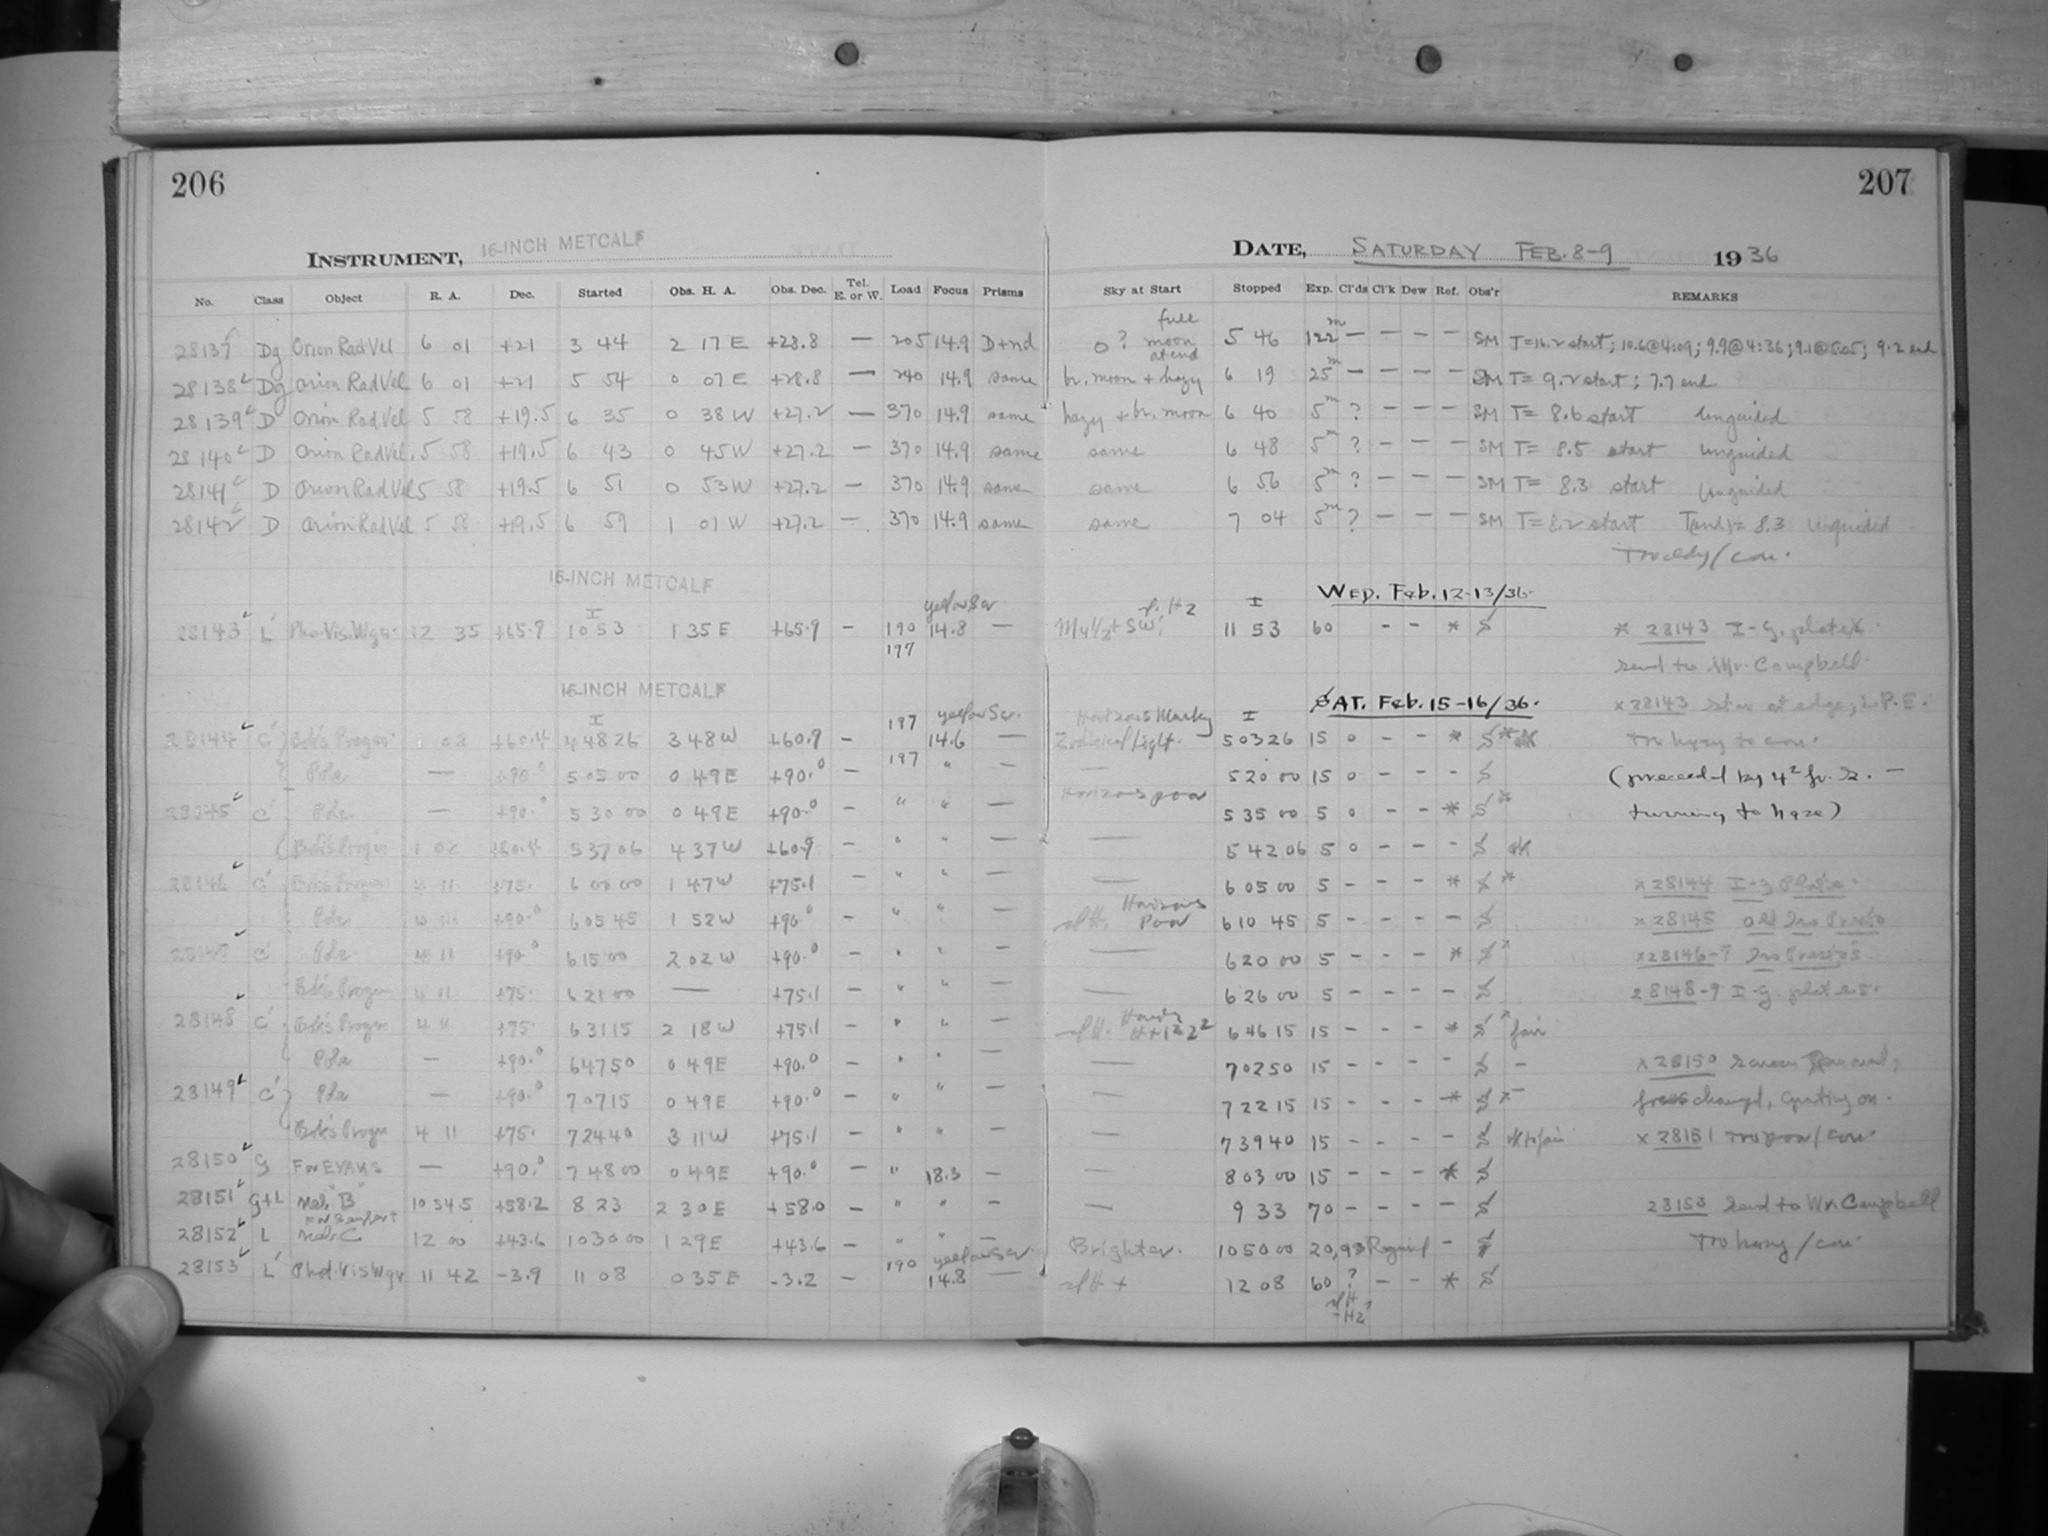 206
207
INSTRUMENT, 16-INCH METCALF
DATE, SATURDAY FEB. 8-9 1936
No. Class Object R. A. Dec. Started Obs. H. A. Obs. Dec. Tel. E. or W. Load Focus Prisms Sky at Start Stopped Exp. Cl'ds Cl'k Dew Ref. Obs'r REMARKS
28137 Dg Orion Rad Vel 6 01 +21 3 44 2 17 E +28.8 — 205 14.9 D+nd o? full moon at end 5 46 122m — — — — SM T=16.2 start; 10.6@4:09; 9.9@4:36; 9.1@5:05; 9.2 end
28138 Dg Orion Rad Vel 6 01 +21 5 54 0 07 E +28.8 — 240 14.9 same br. moon + hazy 6 19 25m — — — — SM T= 9.2 start; 7.7 end
28139 D Orion Rad Vel 5 58 +19.5 6 35 0 38 W +27.2 — 370 14.9 same hazy + br. moon 6 40 5m ? — — — SM T= 8.6 start unguided
28140 D Orion Rad Vel. 5 58 +19.5 6 43 0 45 W +27.2 — 370 14.9 same same 6 48 5m ? — — — SM T= 8.5 start unguided
28141 D Orion Rad Vel 5 58 +19.5 6 51 0 53 W +27.2 — 370 14.9 same same 6 56 5m ? — — — SM T= 8.3 start unguided
28142 D Orion Rad Vel 5 58 +19.5 6 59 1 01 W +27.2 — 370 14.9 same same 7 04 5m ? — — — SM T=8.2 start T(end)= 8.3 unguided
Too cldy/con.
16-INCH METCALF WED. Feb. 12-13/36.
28143 L' Pho.Vis.Wgn. 12 35 +65.9 10 53 1 35 E +65.9 — 190 197 yellow Scr 14.8 — 11 53 60 — — * S * 28143 I-G. plate
send to Mr. Campbell.
16-INCH METCALF SAT. Feb. 15-16/36. x 28143 star at edge, L.P.E.
28144 C' Bok's Progm 1 02 +60.4 4 48 26 3 48 W +60.9 — 197 yellow Scr. 14.6 — Horizons Murky Zodiacal light. 5 03 26 15 0 — — * S* ok Too hazy to con.
Pole — +90.0 5 05 00 0 49 E +90.0 — 197 " — — 5 20 00 15 0 — — - S (preceded by 4² fr. S. —
28145 C' Pole — +90.0 5 30 00 0 49 E +90.0 — " " — Horizons poor 5 35 00 5 0 — — * S* turning to haze)
Bok's Progm 1 02 +60.4 5 37 06 4 37 W +60.9 — " " — — 5 42 06 5 0 — — - S ok
28146 C' Bok's Progm 4 11 +75. 6 00 00 1 47 W +75.1 — " " — — 6 05 00 5 — — — * S* x 28144 I-G Plate.
Pole 4 11 +90.0 6 05 45 1 52 W +90.0 — " " — Horizons Poor 6 10 45 5 — — — — S x 28145 old Ins Presto
28147 C' Pole 4 11 +90.0 6 15 00 2 02 W +90.0 — " " — — 6 20 00 5 — — — * S* x 28146-7 Ins Presto's
Bok's Progm 4 11 +75. 6 21 00 — +75.1 — " " — — 6 26 00 5 — — — — S 28148-9 I-G. plates.
28148 C' Bok's Progm 4 11 +75. 6 31 15 2 18 W +75.1 — " " — 6 46 15 15 — — — * S* fair
Pole — +90.0 6 47 50 0 49 E +90.0 — " " — — 7 02 50 15 — — — - S — x 28150 screen removed,
28149 C' Pole — +90.0 7 07 15 0 49 E +90.0 — " " — — 7 22 15 15 — — — * S* — focus changed, grating on.
Bok's Progm 4 11 +75. 7 24 40 3 11 W +75.1 — " " — — 7 39 40 15 — — — — S ok to fair x 28151 too poor/con
28150 G For EVANS — +90.0 7 48 00 0 49 E +90.0 — " 18.3 — — 8 03 00 15 — — — * S
28151 G+L Neb. "B" 10 34.5 +58.2 8 23 2 30 E +58.0 — " " — — 9 33 70 — — — — S 28153 send to Mr. Campbell
28152 L Neb. C 12 00 +43.6 10 30 00 1 29 E +43.6 — " " — Brighter. 10 50 00 20 - S Too hazy/con
28153 L' Phot.Vis Wgn 11 42 -3.9 11 08 0 35 E -3.2 — 190 yellow Scr 14.8 — 12 08 60 ? — — * S